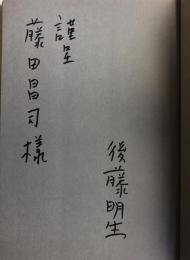 謹呈
藤田昌司様
後藤明生